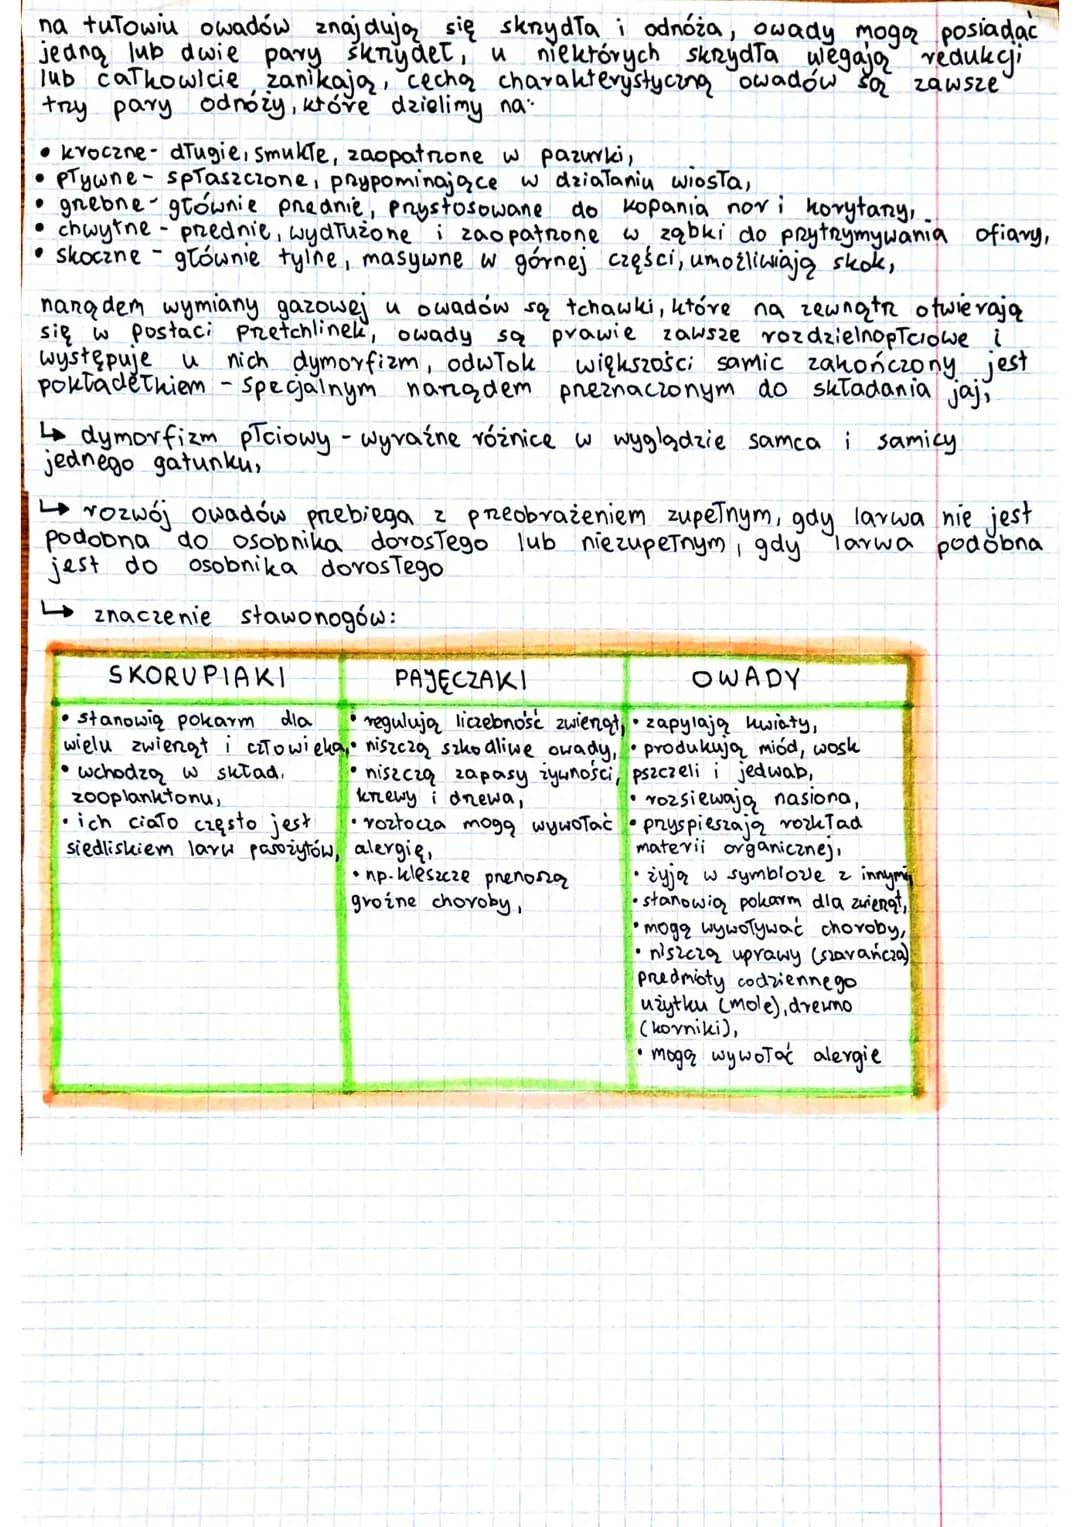 na tułowiu owadów znajdują się skrzydła i odnóża, owady mogą posiadać
jedną lub dwie pary skrzydeł, u niektórych skrzydła ulegają redukcji
lub całkowicie zanikają, cechą charakterystyczną owadów są zawsze
trzy pary odnóży, które dzielimy na:
• kroczne - długie, smukłe, zaopatrzone w pazurki,
• pływne - spłaszczone, przypominające w działaniu wiosła,
• grzebne - głównie przednie, przystosowane do kopania nor i korytarzy,
• chwytne - przednie, wydłużone i zaopatrzone w ząbki do przytrzymywania ofiary,
• skoczne - głównie tylne, masywne w górnej części, umożliwiają skok,
narządem wymiany gazowej u owadów są tchawki, które na zewnątrz otwierają
się w postaci przetchlinek, owady są prawie zawsze rozdzielnopłciowe i
występuje u nich dymorfizm, odwłok większości samic zakończony jest
pokładełkiem - specjalnym narządem przeznaczonym do składania jaj,
↳ dymorfizm płciowy - wyraźne różnice w wyglądzie samca i samicy
jednego gatunku,
↳ rozwój owadów przebiega z przeobrażeniem zupełnym, gdy larwa nie jest
podobna do osobnika dorosłego lub niezupełnym, gdy larwa podobna
jest do osobnika dorosłego
↳ znaczenie stawonogów:
SKORUPIAKI
• stanowią pokarm dla
wielu zwierząt i człowieka,
• wchodzą w skład
zooplanktonu,
• ich ciało często jest
siedliskiem larw pasożytów,
PAJĘCZAKI
• regulują liczebność zwierząt,
• niszczą szkodliwe owady,
• niszczą zapasy żywności,
krzewy i drzewa,
• roztocza mogą wywołać
alergię,
• np. kleszcze przenoszą
groźne choroby,
OWADY
• zapylają kwiaty,
• produkują miód, wosk
pszczeli i jedwab,
• rozsiewają nasiona,
• przyspieszają rozkład
materii organicznej,
• żyją w symbiozie z innymi
• stanowią pokarm dla zwierząt,
• mogą wywoływać choroby,
• niszczą uprawy (szarańcza)
przedmioty codziennego
użytku (mole), drewno
(korniki),
• mogą wywołać alergie